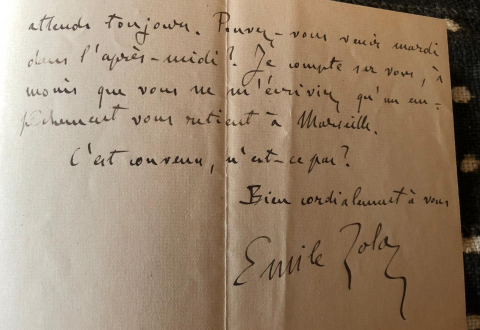 attends toujours. Pouvez-vous venir mardi
dans l'après-midi? Je compte sur vous, à
moins que vous ne m'écriviez qu'un em-
pêchement vous retient à Marseille.
C'est convenu, n'est-ce pas?
Bien cordialement à vous
Emile Zola